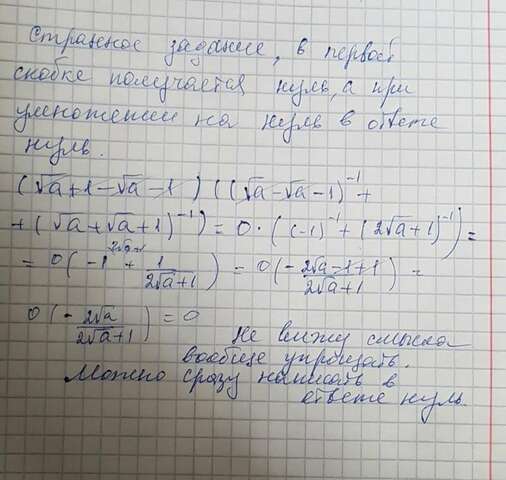 Странное задание, в первой
скобке получается нуль, а при
умножении на нуль в ответе
нуль.
(√a+1-√a-1)((√a-√a-1)⁻¹+
+(√a+√a+1)⁻¹)=0·((-1)⁻¹+(2√a+1)⁻¹)=
=0(-1 2√a+1 + 1/(2√a+1))=0(-2√a-1+1/(2√a+1))=
0(-2√a/(2√a+1))=0
Не вижу смысла
вообще упрощать.
Можно сразу написать в
ответе нуль.